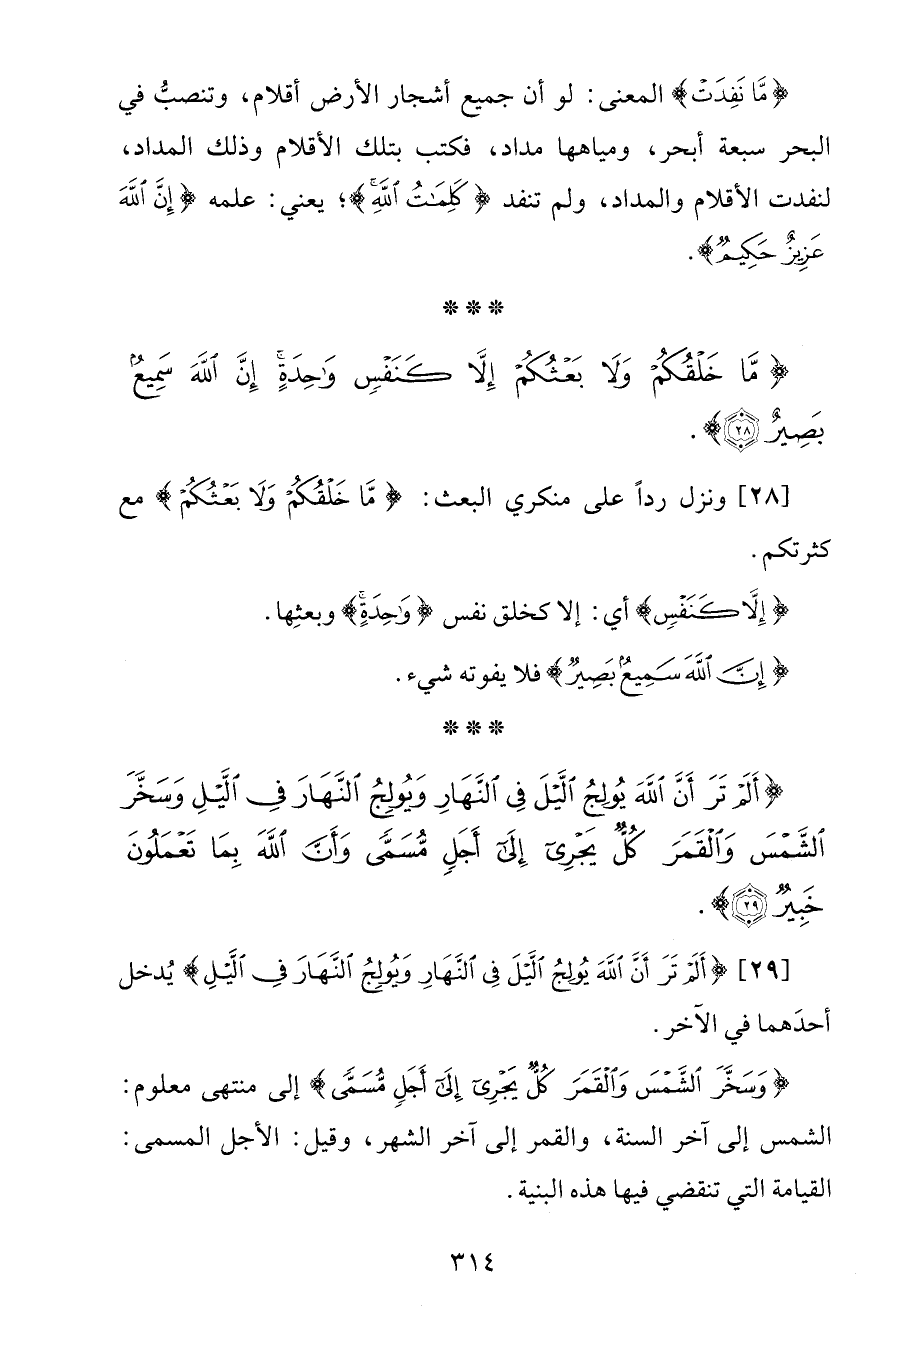 ﴿مَّا نَفِدَتْ﴾ المعنى: لو أن جميع أشجار الأرض أقلام، وتنصبُّ في
البحر سبعة أبحر، ومياهها مداد، فكتب بتلك الأقلام وذلك المداد،
لنفدت الأقلام والمداد، ولم تنفد ﴿كَلِمَٰتُ ٱللَّهِۚ﴾؛ يعني: علمه ﴿إِنَّ ٱللَّهَ
عَزِيزٌ حَكِيمٌ﴾.
❊ ❊ ❊
﴿مَّا خَلْقُكُمْ وَلَا بَعْثُكُمْ إِلَّا كَنَفْسٍ وَٰحِدَةٍۚ إِنَّ ٱللَّهَ سَمِيعٌۢ
بَصِيرٌ ٢٨﴾.
[٢٨] ونزل رداً على منكري البعث: ﴿مَّا خَلْقُكُمْ وَلَا بَعْثُكُمْ﴾ مع
كثرتكم.
﴿إِلَّا كَنَفْسٍ﴾ أي: إلا كخلق نفس ﴿وَٰحِدَةٍۚ﴾ وبعثِها.
﴿إِنَّ ٱللَّهَ سَمِيعٌۢ بَصِيرٌ﴾ فلا يفوته شيء.
❊ ❊ ❊
﴿أَلَمْ تَرَ أَنَّ ٱللَّهَ يُولِجُ ٱلَّيْلَ فِى ٱلنَّهَارِ وَيُولِجُ ٱلنَّهَارَ فِى ٱلَّيْلِ وَسَخَّرَ
ٱلشَّمْسَ وَٱلْقَمَرَ كُلٌّ يَجْرِىٓ إِلَىٰٓ أَجَلٍ مُّسَمًّى وَأَنَّ ٱللَّهَ بِمَا تَعْمَلُونَ
خَبِيرٌ ٢٩﴾.
[٢٩] ﴿أَلَمْ تَرَ أَنَّ ٱللَّهَ يُولِجُ ٱلَّيْلَ فِى ٱلنَّهَارِ وَيُولِجُ ٱلنَّهَارَ فِى ٱلَّيْلِ﴾ يُدخل
أحدَهما في الآخر.
﴿وَسَخَّرَ ٱلشَّمْسَ وَٱلْقَمَرَ كُلٌّ يَجْرِىٓ إِلَىٰٓ أَجَلٍ مُّسَمًّى﴾ إلى منتهى معلوم:
الشمس إلى آخر السنة، والقمر إلى آخر الشهر، وقيل: الأجل المسمى:
القيامة التي تنقضي فيها هذه البنية.
٣١٤